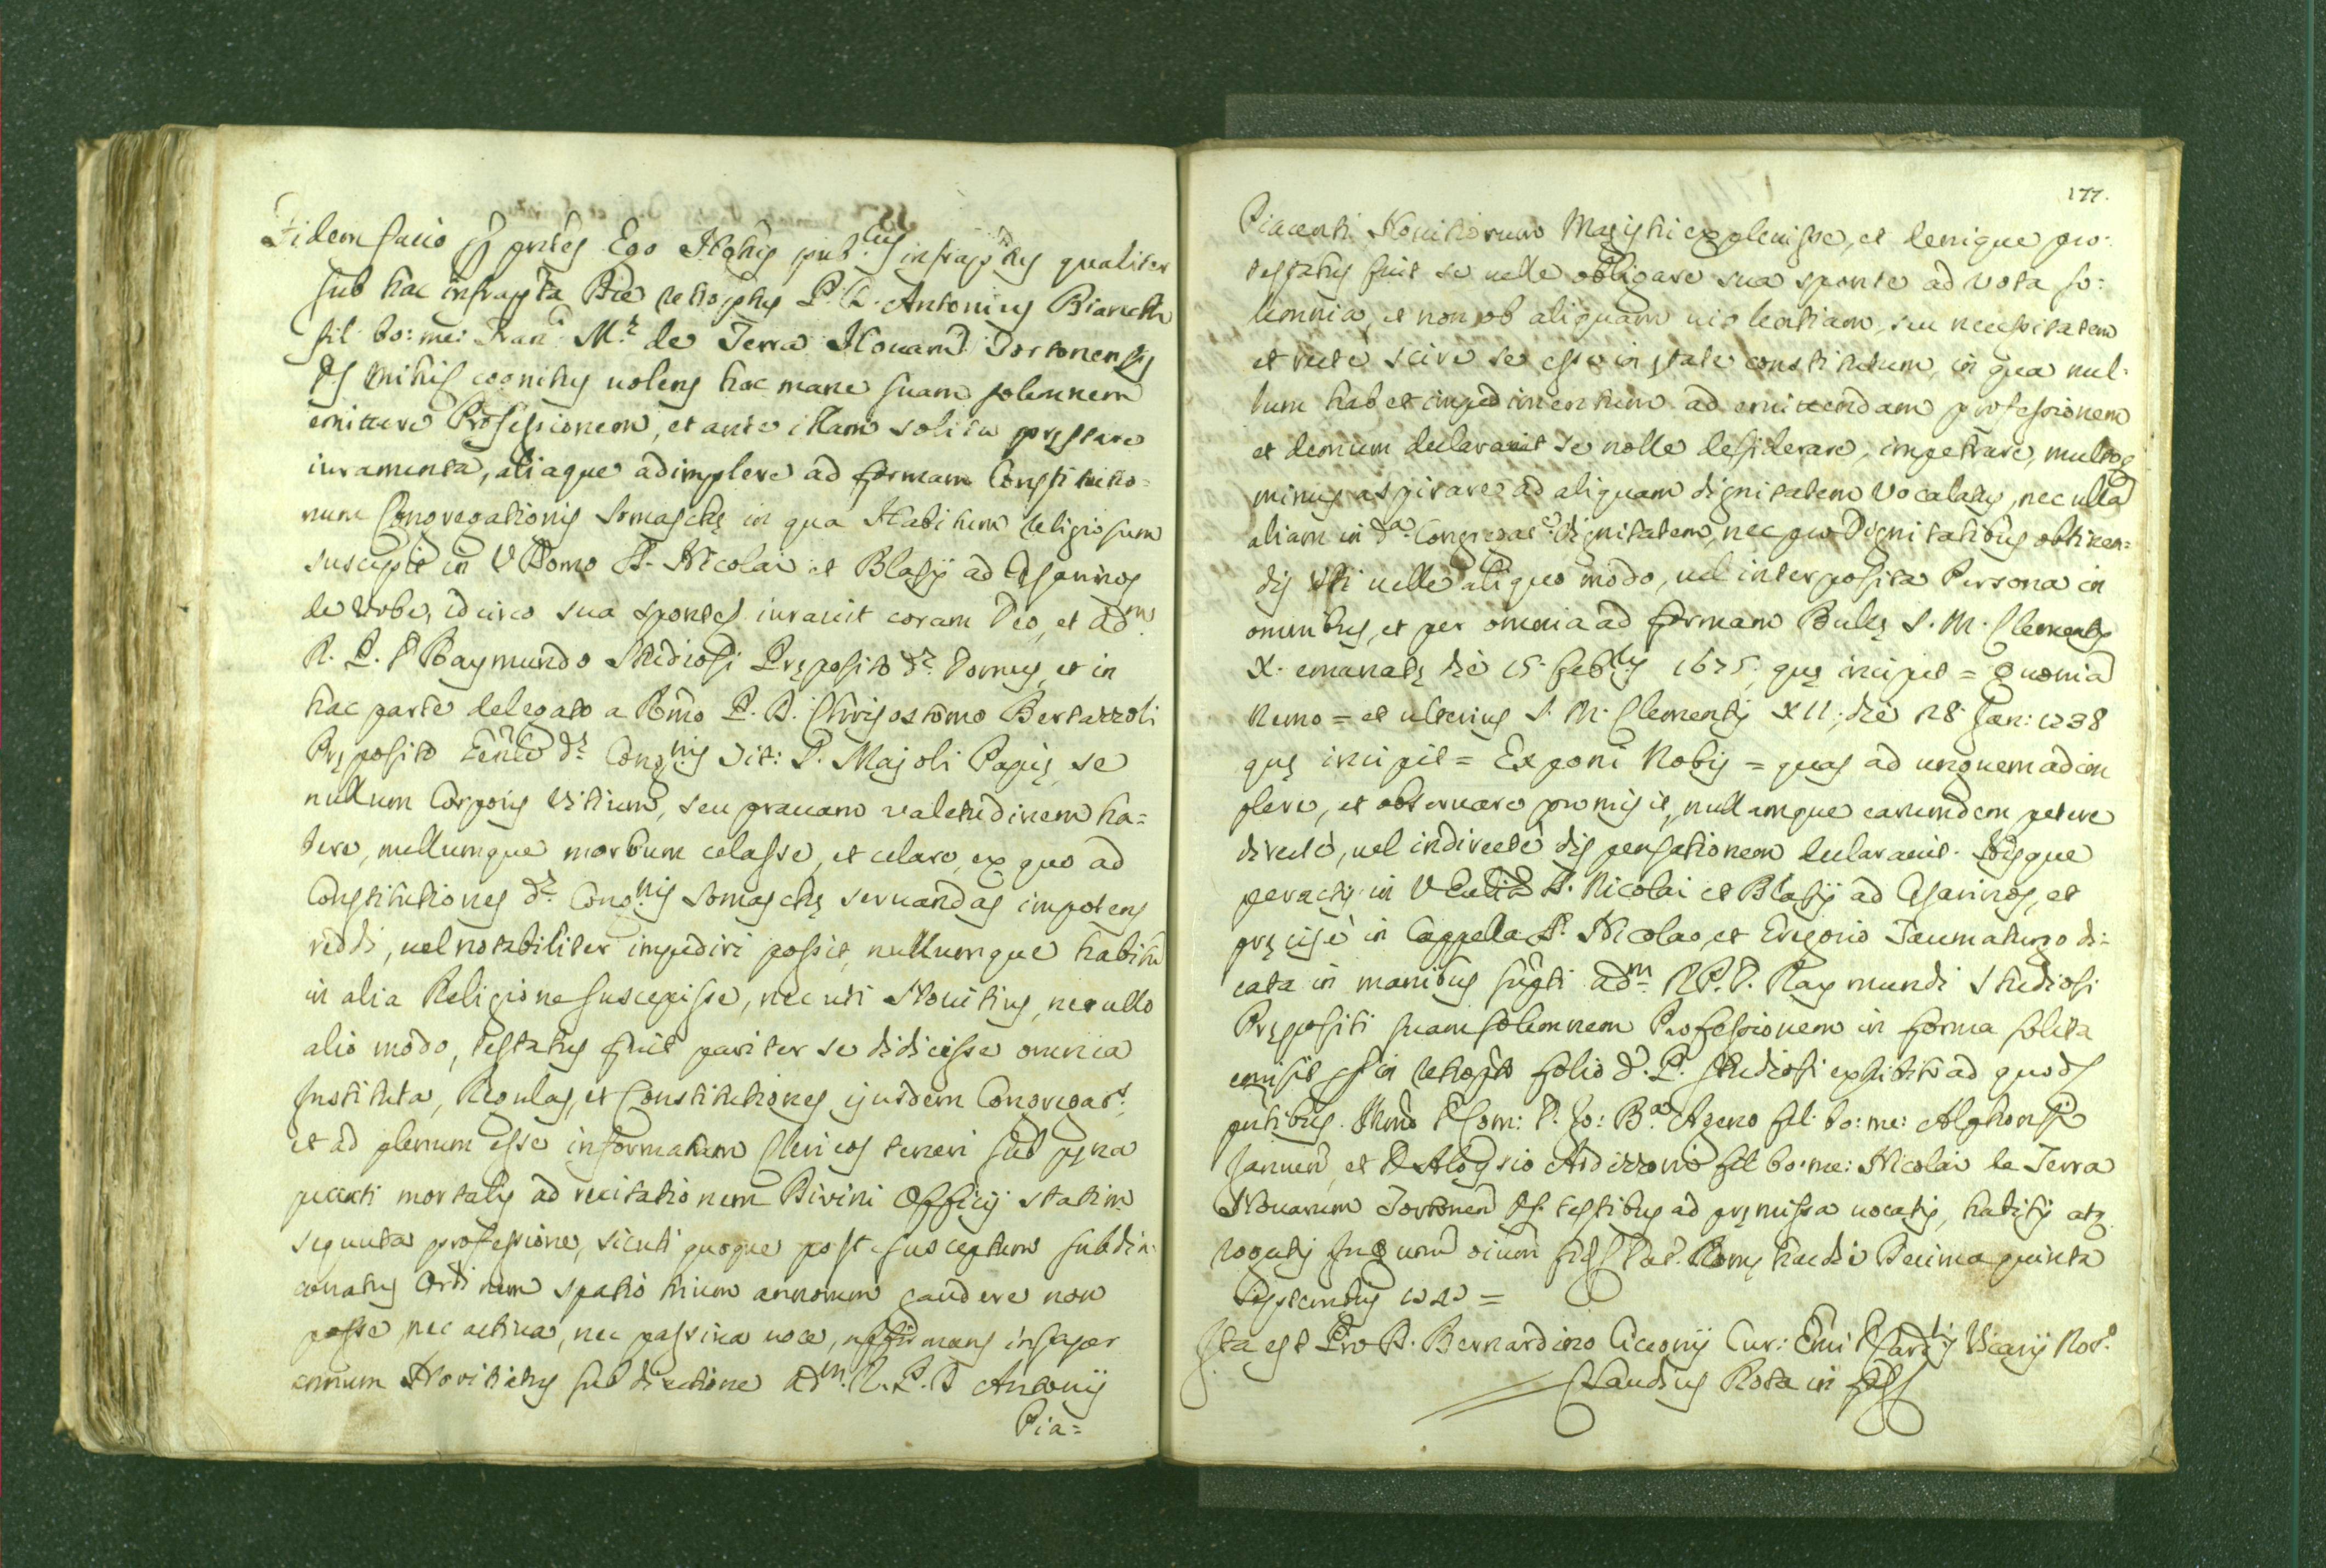 Fidem facio p pntes Ego Notus pub.cus infraptus qualiter
sub hac infrapta Die retroptus P. D. Antonius Bianchi
fil: bo: me: Fran: M.a de Terra Nouarū Dortonensis
mihi cognitus uolens hac mane suam solemnem
emittere Professionem, et ante illam solita pręstare
iuramenta, aliaque adimplere ad formam Constitutio=
num Congregationis Somaschę in qua Habitum religiosum
suscepit in V Domo SS. Nicolai et Blasij ad Cæsarinos
de Urbe, idcirco sua sponte iurauit coram Deo, et adm.
R. P. D Raymundo Studiosi Pręposito d.æ Domus, et in
hac parte delegato a Rmo P. D. Chrisostomo Bertazzoli
Pręposito Genli d.æ Cong.nis Dit: S. Majoli Papię se
nullum Corporis vitium, seu grauam valetudinem ha=
bere, nullumque morbum celasse, et celare, ex quo ad
Constitutiones d.æ Cong.nis Somaschę seruandas impotens
reddi, uel notabiliter impediri possit, nullumque habitū
in alia Religione suscepisse, nec uti Nouitius, nec ullo
alio modo, testatus fuit pariter se didicisse omnia
Instituta, Regulas, et Constitutiones ejusdem Congregat.s
et ad plenum esse informatum Clericos teneri sub pęna
peccati mortalis ad recitationem Divini Officij statim
sequuta professione, sicuti quoque post susceptum subdia=
conatus Ordinem spatio trium annorum gaudere non
posse, nec activa, nec passiva uoce, affirmans insuper
annum Novitiatus sub directione adm. R. P. D Antonij
Pia=
177.
Piacenti Nouitiorum Magistri expleuisse, et denique pro=
testatus fuit se uelle obligare sua sponte ad vota so=
lemnia, et non ob aliquam uiolentiam, seu necessitatem
et recte scire se esse in ętate constitutum, in qua nul=
lum habet impedimentum ad emittendam professionem
et demum declarauit se nolle desiderare, impetrare, multoq
minus aspirare ad aliquam dignitatem Vocalatus, nec ullā
aliam in d.a Congregat.e dignitatem, nec pro Dignitatibus obtinen=
dis uti uelle aliquo modo, uel interposita Persona in
omnibus, et per omnia ad formam Bullę S. M. Clementis
X. emanatę die 15. feb.rij 1675. quę incipit = Quoniā
Nemo = et ulterius S. M. Clementis XII, die 28. Jan: 1738
quę incipit = Exponi Nobis = quas ad unguem adim
plere, et obseruare promisit, nullamque earumdem petere
directe, uel indirecte dispensationem declarauit. Hisque
peractis in V Ecclia SS. Nicolai et Blasij ad Cæsarinos, et
pręcise in Cappella S. Nicolao, et Gregorio Taumaturgo di=
cata in manibus supti adm. R P. D. Raymundi Studiosi
Prępositi suam solemnem Professionem in forma solita
emisit in retropto folio d. P. Studiosi exhibito ad quod
pntibus. Illmo D Com: D. Jo: B.a Ageno fil: bo: me: Alphonsi
Januen, et D Aloysio Ardizzoni fil bo: me: Nicolai de Terra
Nouarum Dortonen testibus ad pręmissa uocatis, habitis atq
rogatis In quorum oium fid Dat. Romę hac die Decima quinta
Septembris 174 =
Ita est Pro D. Bernardino Ciceonij Cur: Emi D Card.lis Vicarij Not.o
Claudius Rota in fid